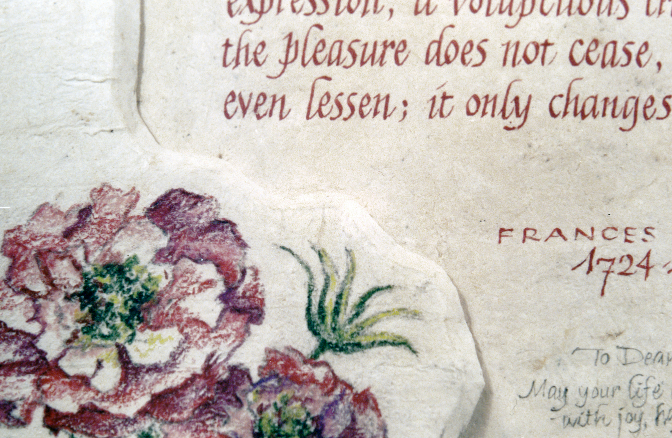 expression, a voluptuous
the pleasure does not cease,
even lessen; it only changes
FRANCES
1724
To Dear
May your life
with joy,